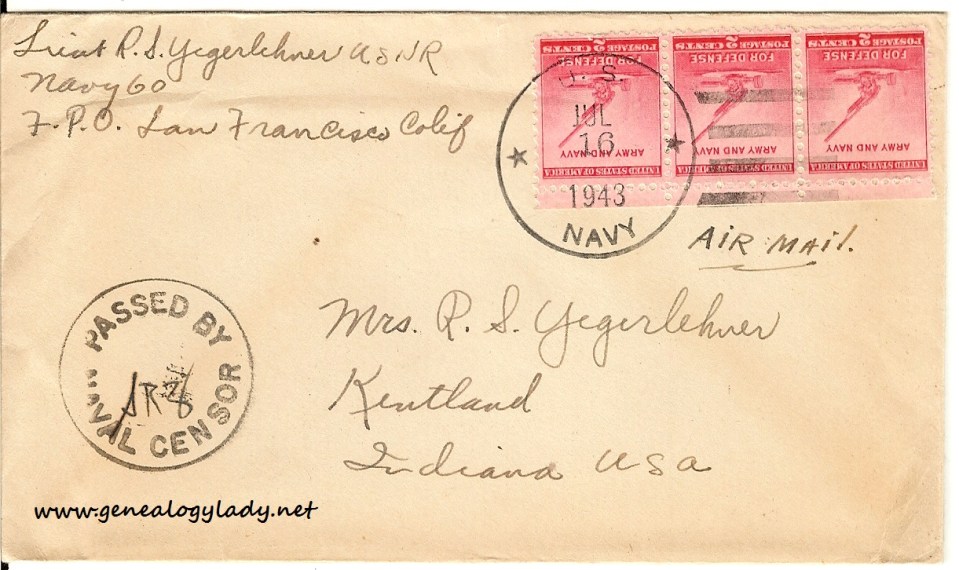 Lieut R. S. Yegerlehner USNR
Navy 60
F. P. O. San Francisco Calif
POSTAGE 2 CENTS
FOR DEFENSE
ARMY AND NAVY
UNITED STATES OF AMERICA
POSTAGE 2 CENTS
FOR DEFENSE
ARMY AND NAVY
UNITED STATES OF AMERICA
POSTAGE 2 CENTS
FOR DEFENSE
ARMY AND NAVY
UNITED STATES OF AMERICA
U. S.
JUL
16
1943
NAVY
AIR MAIL.
Mrs. R. S. Yegerlehner
Kentland
Indiana USA
PASSED BY
NAVAL CENSOR
www.genealogylady.net